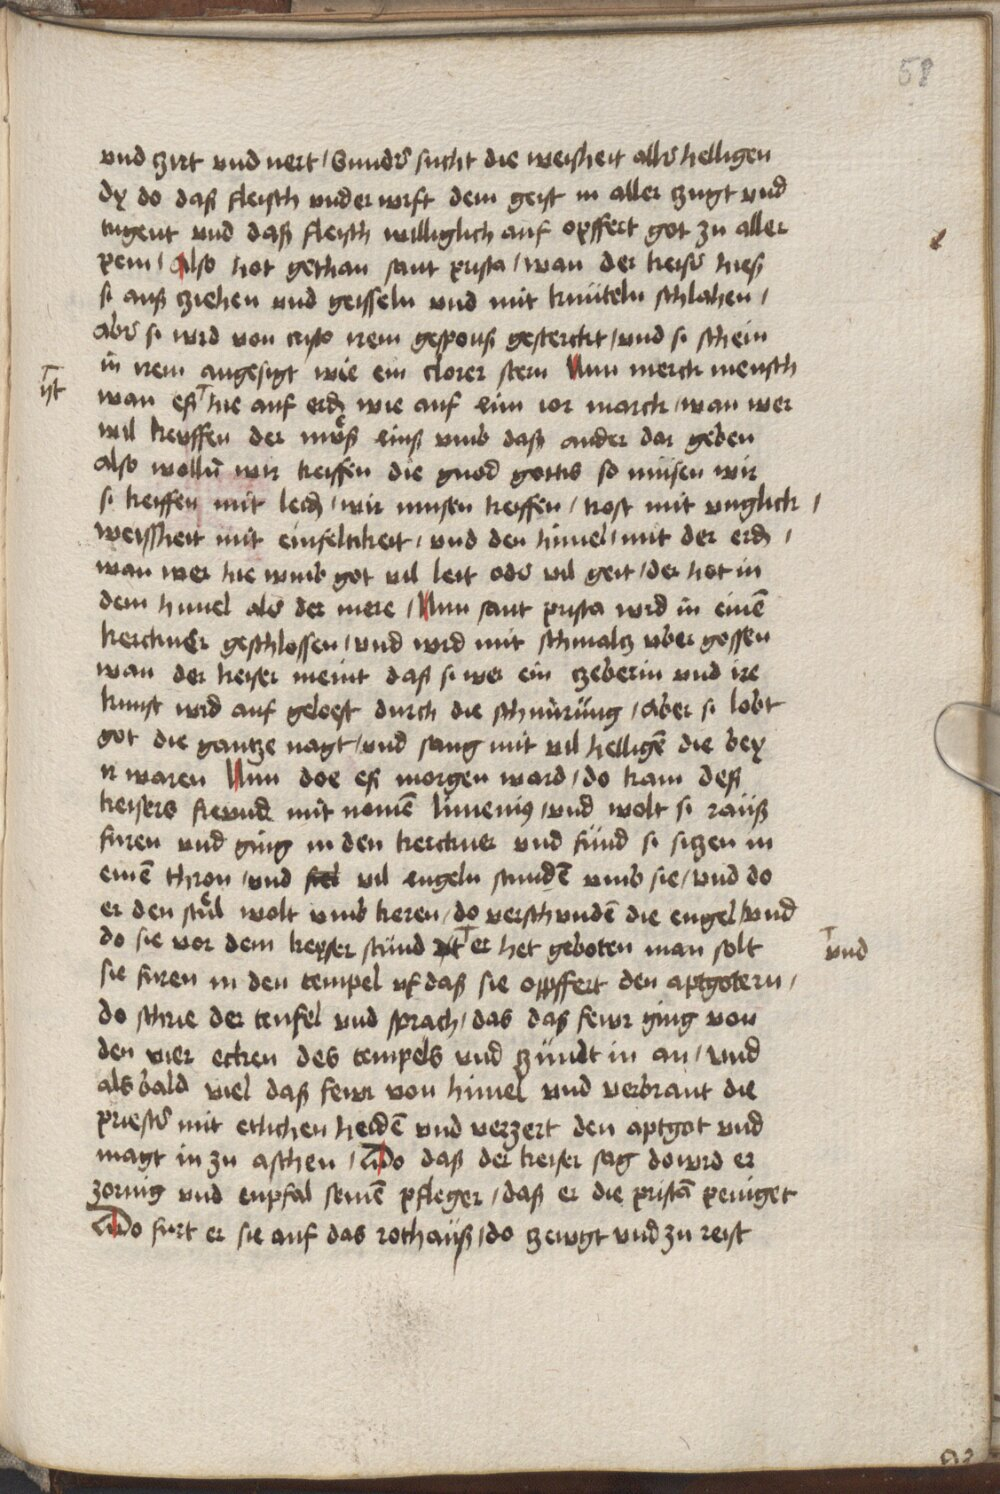 58
vnd zirt vnd nert / Sunder sucht die weisheit aller helligen
dy do daß fleisch vnder wrft dem geist in aller zugt vnd
tugent vnd daß fleisch williglich auf opffert got zu aller
pein / Also hot gethan sant prista / wan der keiser hieß
si auß ziehen vnd geisseln vnd mit knüteln schlahen /
aber si wrd von cristo irem gespons gesterckt / vnd si schein
in irem angesigt wie ein clorer stern Nun merck mensch
ist
wan eß hie auf erd wie auf eim ior marck / wan wer
wil keuffen der muͦß einß vmb daß ander dar geben
also wollen wir keiffen die gnod gottis so müsen wir
si keiffen mit leid / wir musen keiffen / trost mit vnglick /
weissheit mit einfeltikeit / vnd den himel / mit der erd /
wan wer hie vmb got vil leit oder vil geit / der hot in
dem himel als der mere / Nun sant prista wrd in einē
kerckner geschlossen / vnd wrd mit schmalcz vber gossen
wan der keiser meint daß si wer ein zeberin vnd ire
kunst wrd auf geloest durch die schmirüng / aber si lobt
got die gantze nagt / vnd sang mit vil helligē die bey
ir waren Nun doe eß morgen ward / do kam deß
keisers freund mit nomē limenius / vnd wolt si rauß
furen vnd ging in den kerckner vnd fünd si siczen in
einē thron / vnd vil engeln stundē vmb sie / vnd do
er den stuͦl wolt vmb keren / do verschundē die engel / vnd
do sie vor dem keyser stünd er het geboten man solt
vnd
sie furen in den tempel vf daß sie opffert den aptgotern /
do schrie der teufel vnd sprach / das daß fewr ging von
den vier ecken des tempels vnd zündt in an / vnd
als bald viel daß fewr von himel vnd verbrant die
priester mit etlichen heidē vnd verzert den aptgot vnd
magt in zu aschen / Do daß der keiser sag do wrd er
zornig vnd enpfal seinē pfleger / daß er die pristā peniget
Do furt er sie auf das rothauß / do zewgt vnd zu reist